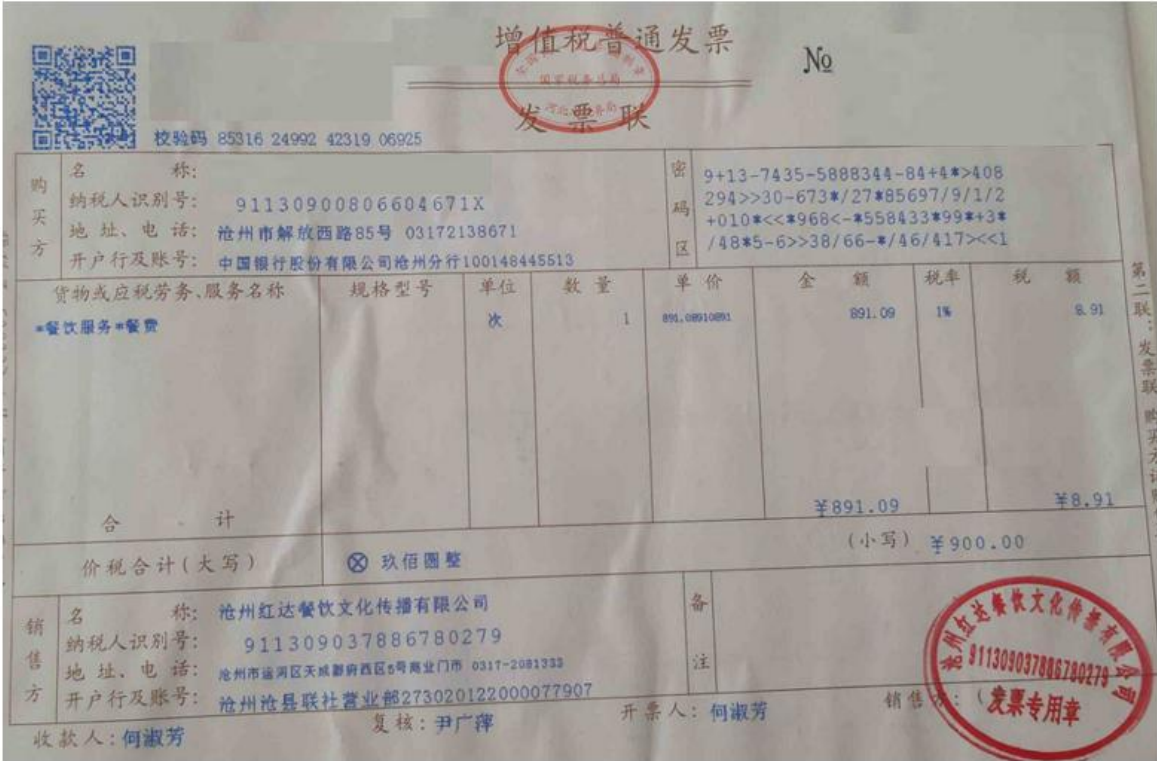 增值税普通发票
国家税务总局
发票联
No
校验码 85316 24992 42319 06925
购买方
名称:
纳税人识别号: 91130900806604671X
地址、电话: 沧州市解放西路85号 03172138671
开户行及账号: 中国银行股份有限公司沧州分行100148445513
密码区
9+13-7435-5888344-84+4*>408
294>>30-673*/27*85697/9/1/2
+010*<<*968<-*558433*99*+3*
/48*5-6>>38/66-*/46/417><<1
货物或应税劳务、服务名称 规格型号 单位 数量 单价 金额 税率 税额
*餐饮服务*餐费 次 1 891.08910891 891.09 1% 8.91
合计 ¥891.09 ¥8.91
价税合计(大写) ⊗ 玖佰圆整 (小写) ¥900.00
销售方
名称: 沧州红达餐饮文化传播有限公司
纳税人识别号: 911309037886780279
地址、电话: 沧州市运河区天成郡府西区5号商业门市 0317-2081333
开户行及账号: 沧州沧县联社营业部273020122000077907
备注
收款人: 何淑芳 复核: 尹广萍 开票人: 何淑芳 销售
沧州红达餐饮文化传播有限公司
911309037886780279
发票专用章
第二联:发票联